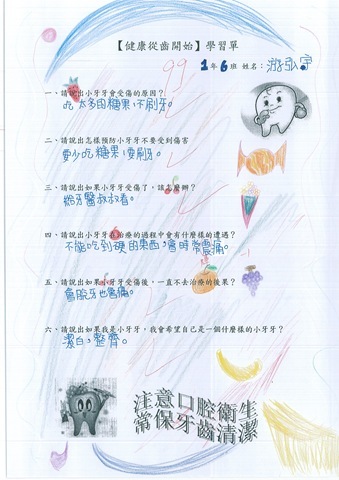 【健康從齒開始】學習單
99
1年6班 姓名：游弘宇
一、請說出小牙牙會受傷的原因？
吃太多的糖果，不刷牙。
二、請說出怎樣預防小牙牙不要受到傷害
要少吃糖果，要刷牙。
三、請說出如果小牙牙受傷了，該怎麼辦？
給牙醫叔叔看。
四、請說出小牙牙在治療的過程中會有什麼樣的遭遇？
不能吃到硬的東西，會時常震痛。
五、請說出如果小牙牙受傷後，一直不去治療的後果？
會脫牙也會痛。
六、請說出如果我是小牙牙，我會希望自己是一個什麼樣的小牙牙？
潔白，整齊。
注意口腔衛生
常保牙齒清潔